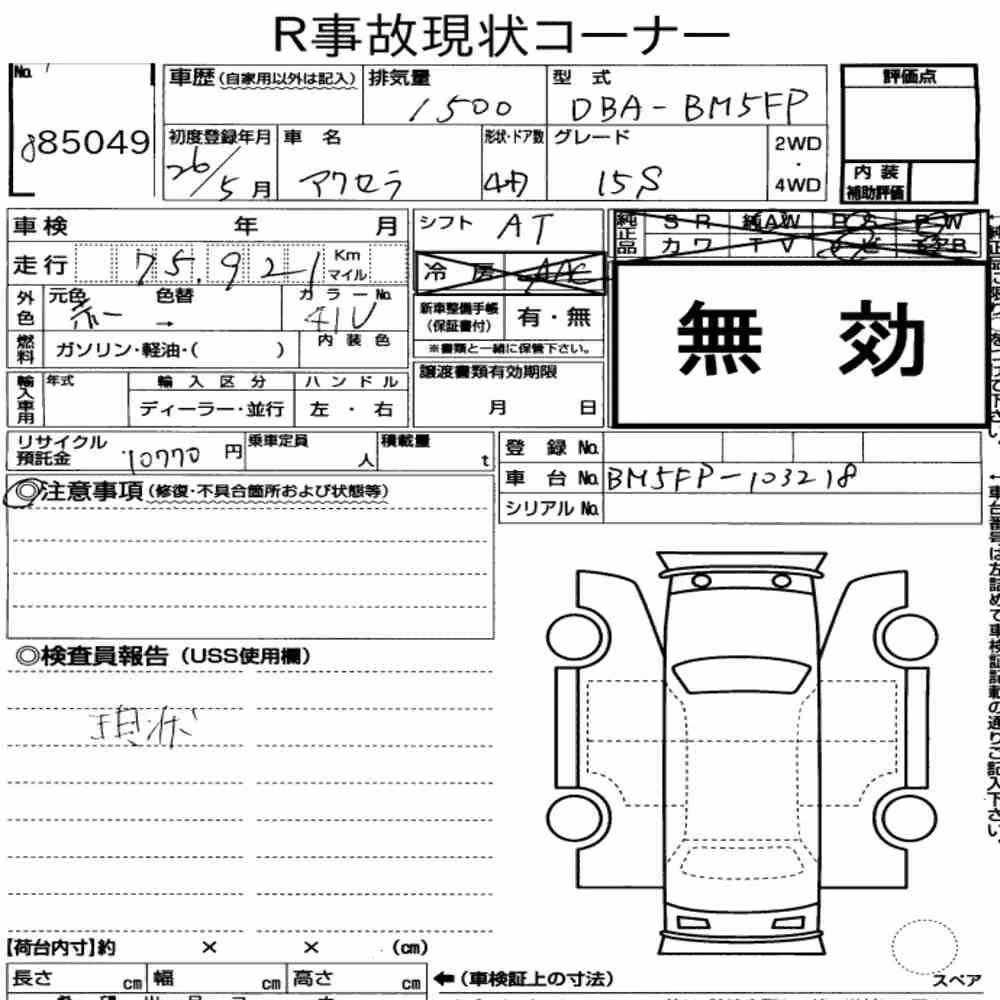 R事故現状コーナー
No.
85049
車歴(自家用以外は記入)
排気量
1500
型 式
DBA-BM5FP
評価点
初度登録年月
26/5月
車 名
アクセラ
形状・ドア数
4D
グレード
15S
2WD
・
4WD
内 装
補助評価
車検 年 月
シフト AT
純正品
S R
純AW
P S
P W
カ ワ
T V
ナ ビ
エアB
走行 75,921 Km
マイル
冷 房 A/C
無 効
外色
元色 赤
色替 →
カラーNo.
41V
新車整備手帳
(保証書付)
有・無
燃料
ガソリン・軽油・( )
内 装 色
※書類と一緒に保管下さい。
輸入車用
年式
輸 入 区 分
ディーラー・並行
ハ ン ド ル
左 ・ 右
譲渡書類有効期限
月 日
リサイクル
預託金
10770 円
乗車定員
人
積載量
t
登 録 No.
車 台 No. BM5FP-103218
シリアル No.
◎注意事項(修復・不具合箇所および状態等)
◎検査員報告(USS使用欄)
現状
車台番号は左詰めで車検証記載の通りご記入下さい。
【荷台内寸】約 × × (cm)
長さ cm 幅 cm 高さ cm
←(車検証上の寸法)
スペア